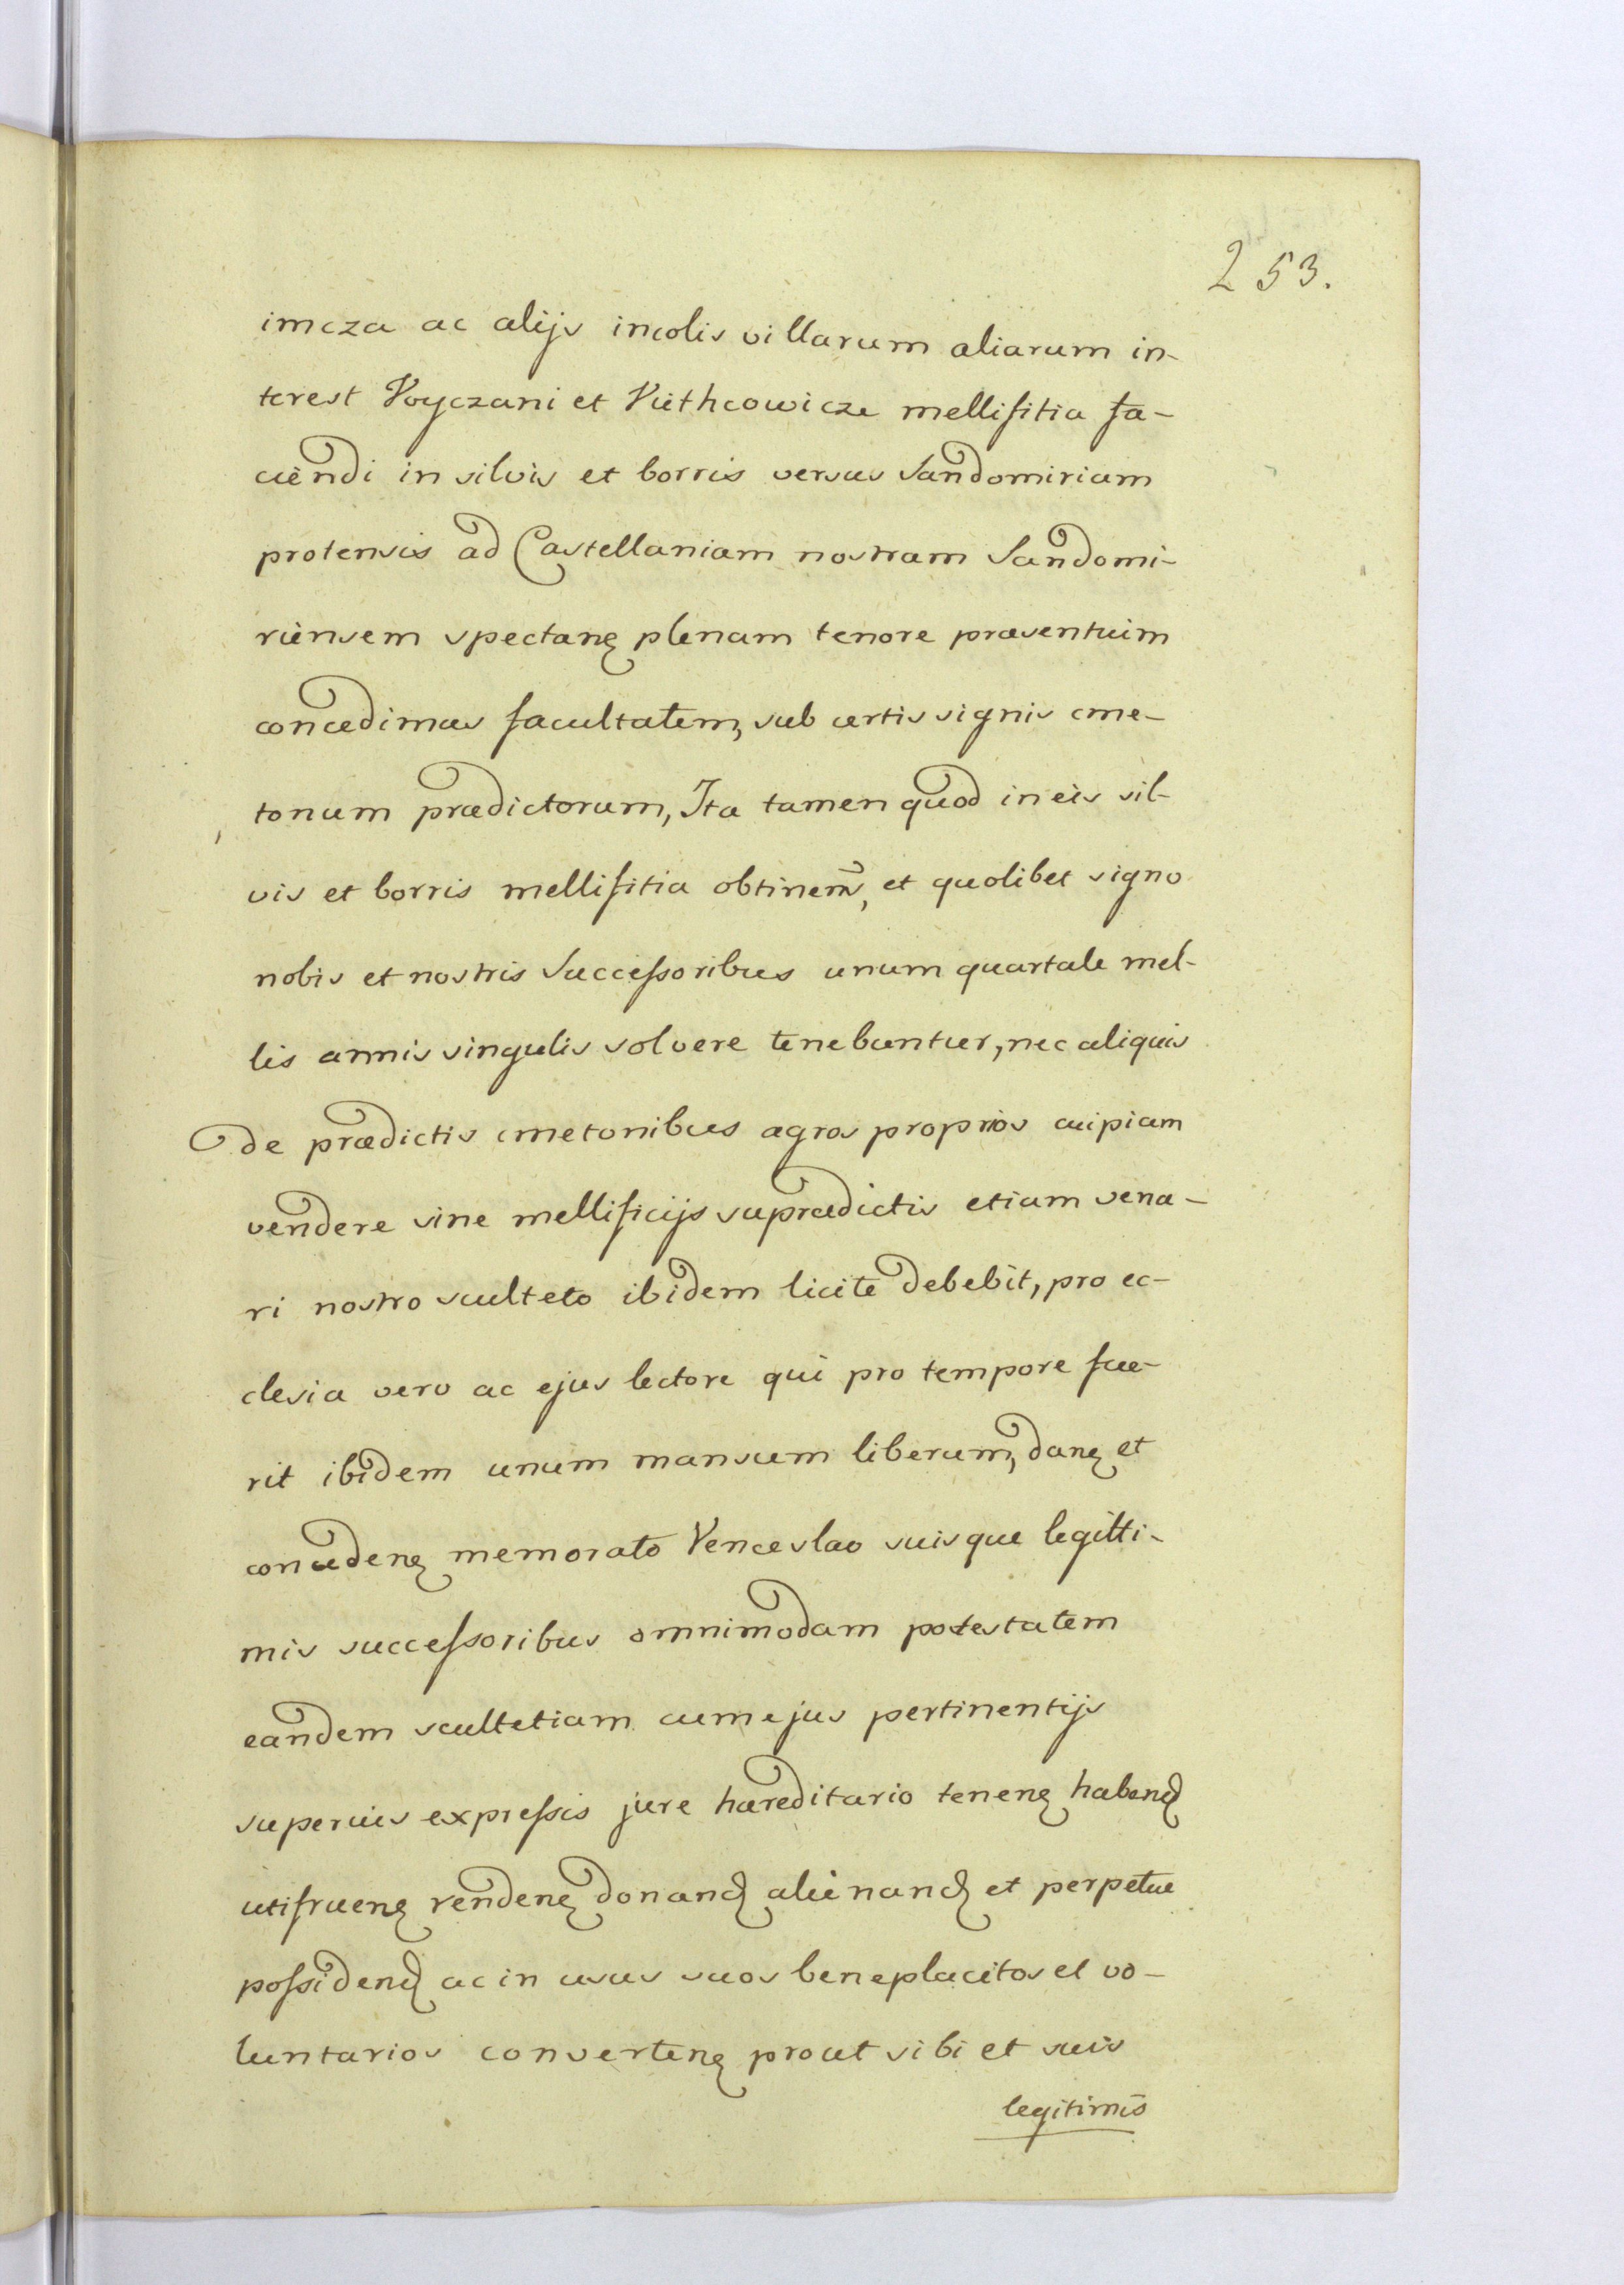 253.
imcza ac alijs incolis villarum aliarum in-
terest Voyczani et Viethcowicze mellifitia fa-
ciendi in silvis et borris versus Sandomiriam
protensis ad Castellaniam nostram Sandomi-
riensem spectanȩ plenam tenore præsentium
concedimus facultatem, sub certis signis cme-
tonum prædictorum, Ita tamen quod in eis sil-
vis et borris mellifitia obtinem̃, et quolibet signo
nobis et nostris Successoribus unum quartale mel-
lis annis singulis solvere tenebuntur, nec aliquis
de prædictis cmetonibus agros proprios cuipiam
vendere sine mellificijs supradictis etiam vena-
ri nostro sculteto ibidem licite debebit, pro ec-
clesia vero ac ejus lectore qui pro tempore fue-
rit ibidem unum mansum liberum, danȩ et
concedenȩ memorato Venceslao suisque legitti-
mis successoribus omnimodam potestatem
eandem scultetiam cum ejus pertinentijs
superius expressis jure hæreditario tenenȩ habend
utifruenȩ vendenȩ donand alienand et perpetue
possidend ac in usus suos beneplacitos et vo-
luntarios convertenȩ prout sibi et suis
legitimis